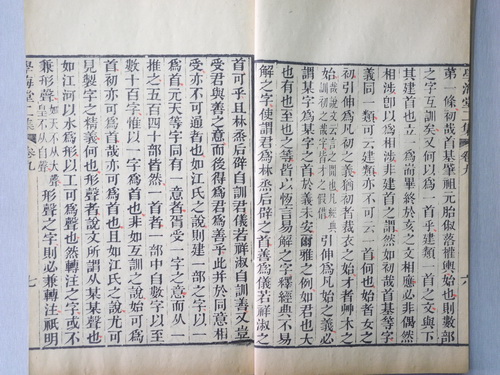 第一條初哉首基肇祖元胎俶落權輿始也則數部
之字互訓矣又何以為一首乎建類一首之文與下
其建首也立一為耑畢終於亥之文相應必非偶然
相涉卽以為相涉非建首之謂然如初哉首基等字
義同一類可云建類亦不可云一首何也始者女之
初引伸為凡初之義猶初者裁衣之始才者艸木之
始
引伸為凡始之義必
謂某字為某字之首於義未安爾雅之例如君也大
也有也至也之等皆以恆言易解之字釋經典不易
解之字使謂君為林烝后辟之首善為儀若祥淑之
首可乎且林烝后辟自訓君儀若祥淑自訓善又豈
受君與善之意而後得為君為善乎此并於同意相
受亦不可通者也如江氏之說則建一部之字以一
為首元天等字同有一意者胥受一字之意而从一
推之五百四十部皆然一首者一部中自數字至
數十百字惟以一字為首也非如互訓之說始可為
首初亦可為首哉亦可為首也且如江氏之說尤可
見製字之精義何也形聲者說文所謂从某某聲也
如江河以水為形以工可為聲也然轉注之字或不
兼形聲
形聲之字則必兼轉注祇明
學海堂二集 卷九 七
學海堂二集 卷九 六